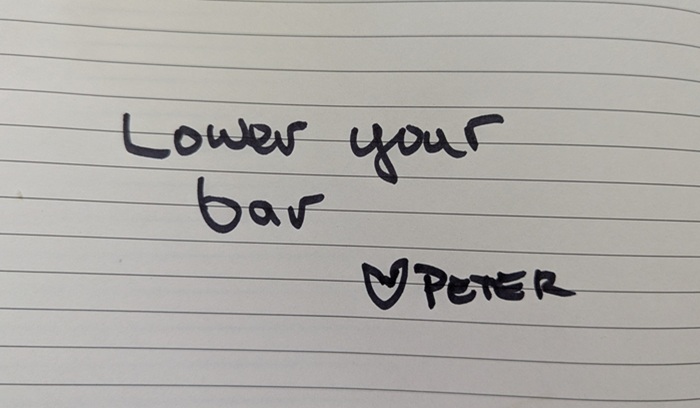 Lower your
bar
♡ PETER